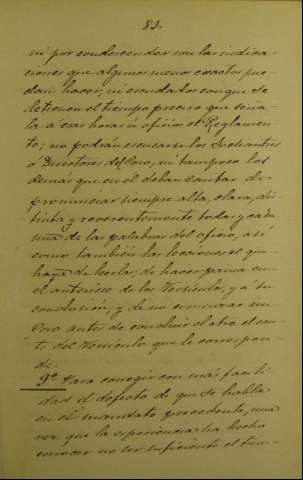 83.
ni por condescendar con las indica-
ciones que algunos menos exactos pue-
dan hacer, ni con dar los conque se
detienen el tiempo preciso que seña-
la á esas horas ú oficios el Reglamen-
to; no podrán escusarse los Sochantres
ó Directores del Coro, ni tampoco los
demás que en él deban cantar de
pronunciar siempre alta, clara, dis-
tinta y reverentemente todas y cada
una de las palabras del oficio, así
como también las lecciones el que
haya de leerlas; de hacer pausa en
el asterisco de los Versículos, y a su
conclusión, y de no comenzar un
Coro antes de concluir el otro el can-
to del Versículo que le correspon-
de.
9º Para corregir con más facili-
dad el defecto de que se habla
en el mandato precedente, una
vez que la esperiencia ha hecho
conocer no ser suficiente el tiem-